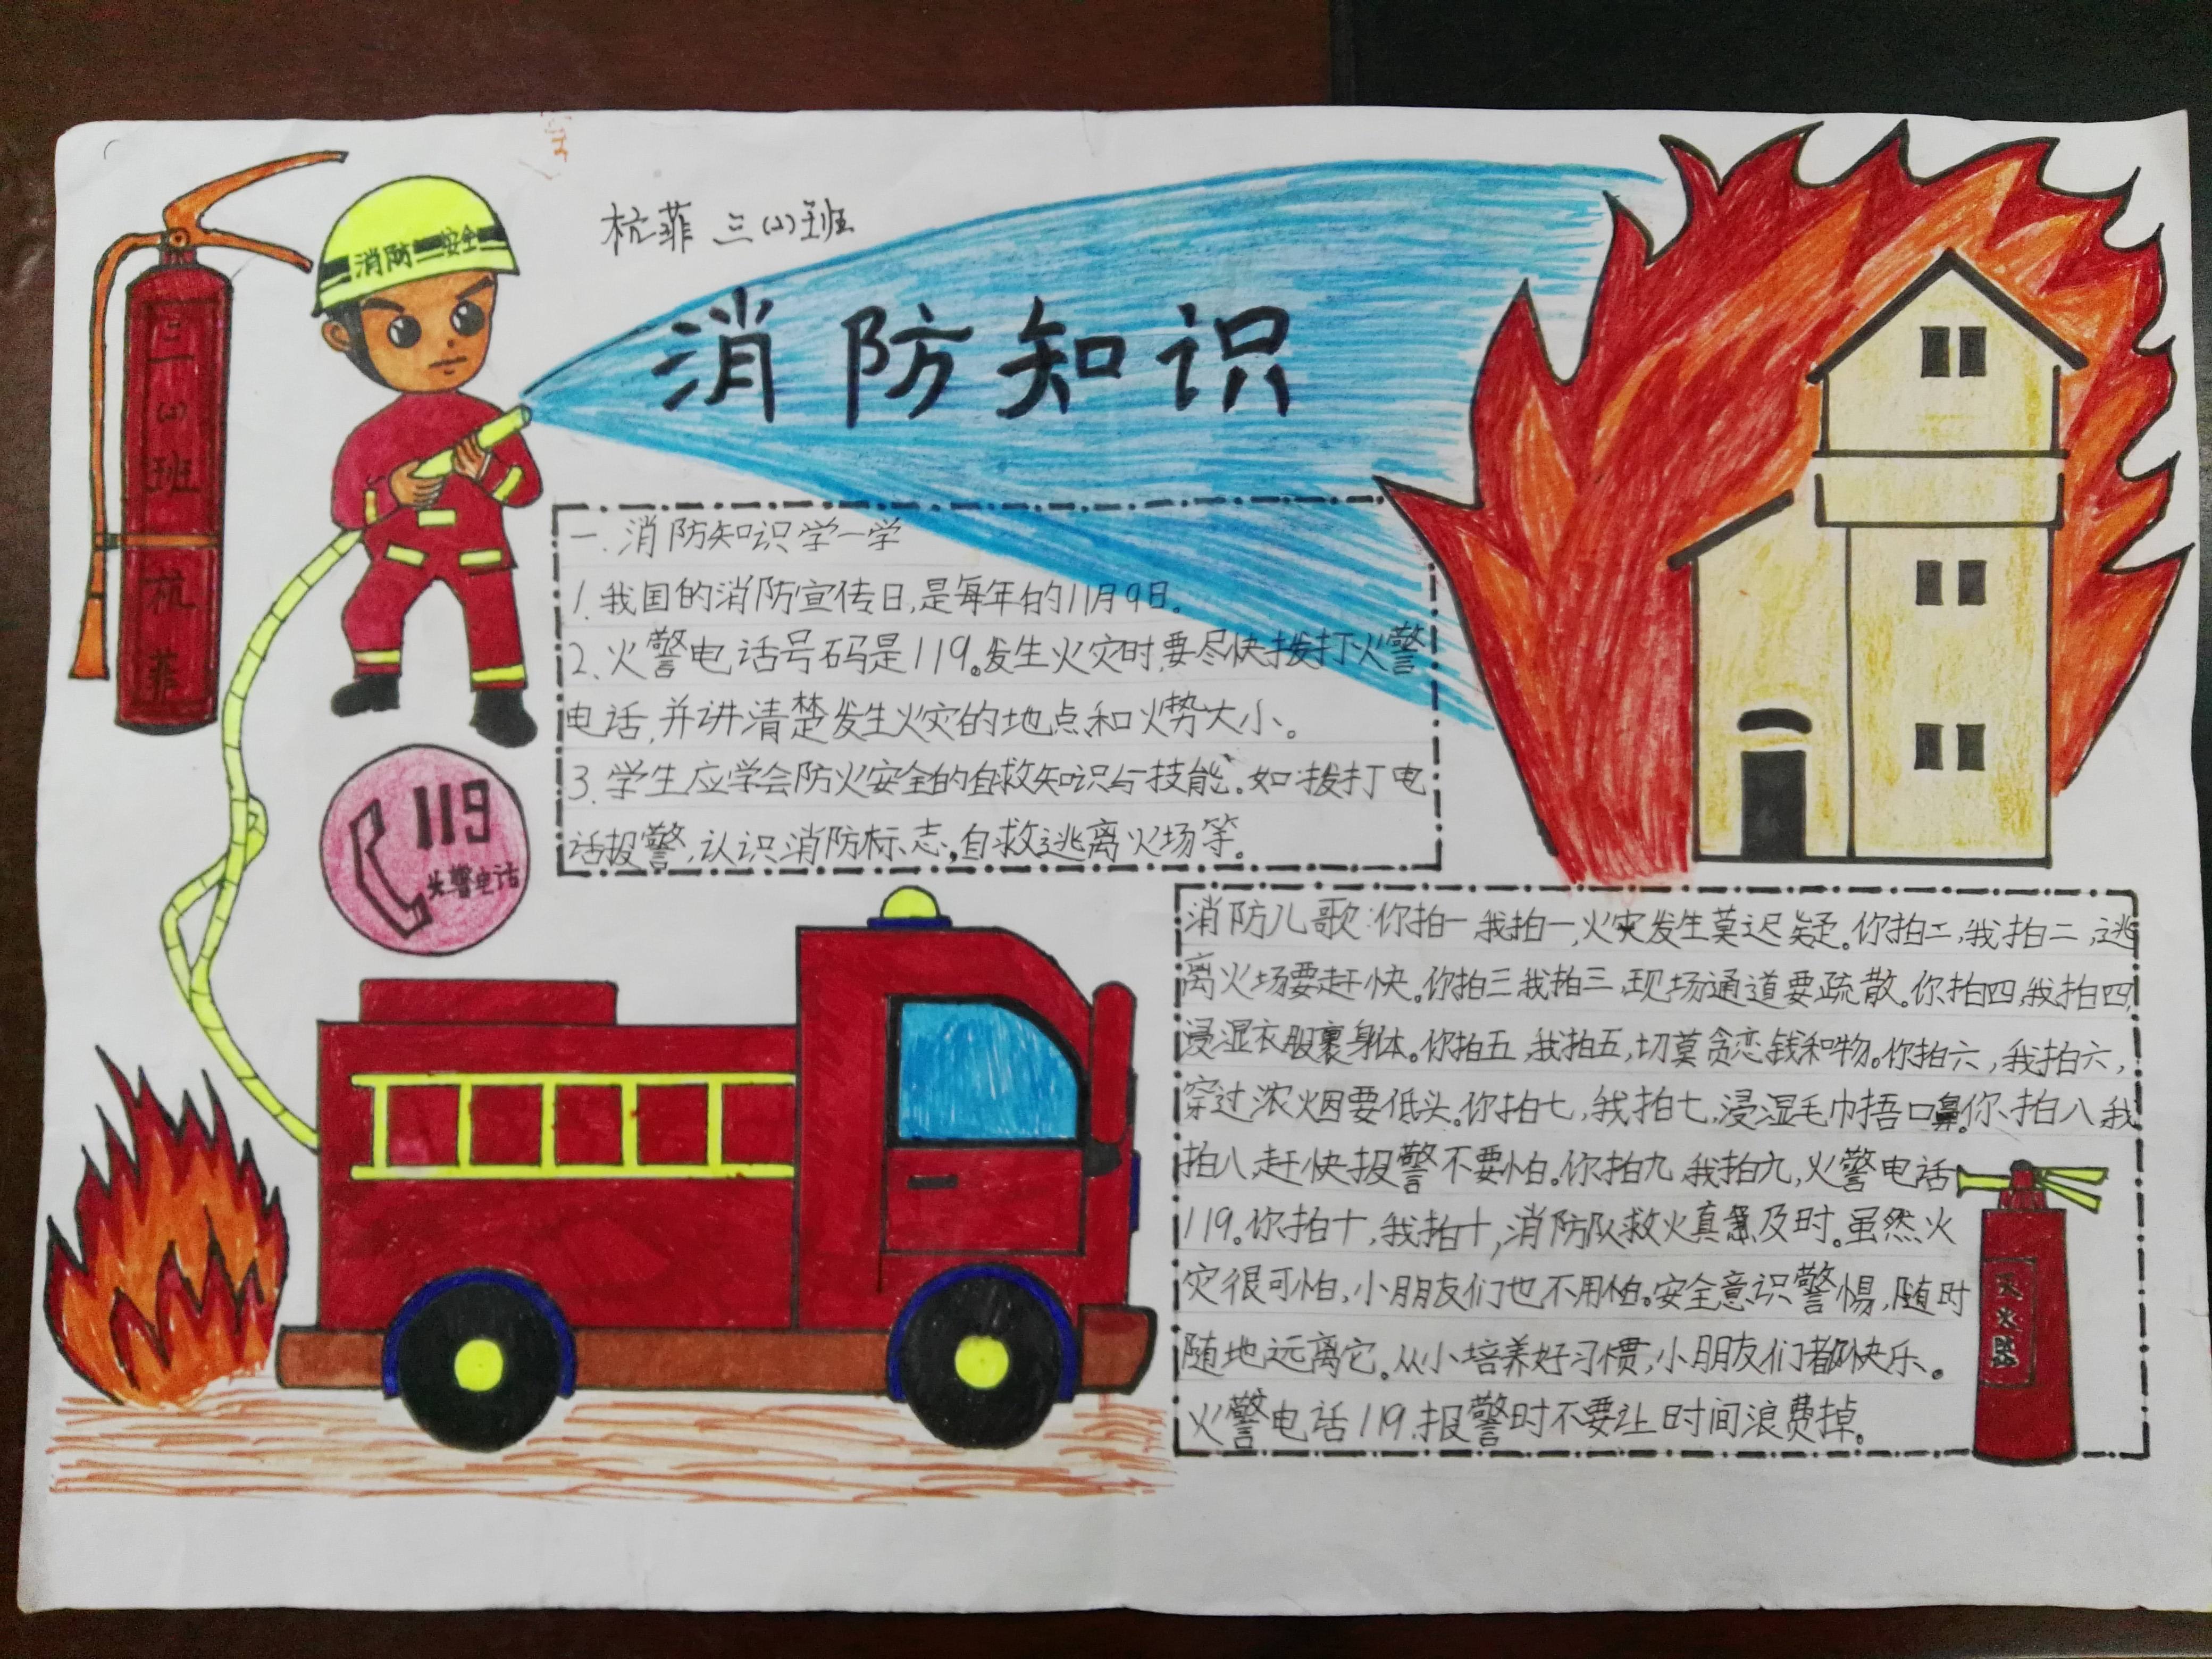 杭菲 三(2)班
消防安全
三(2)班杭菲
消防知识
一.消防知识学一学
1.我国的消防宣传日,是每年的11月9日。
2.火警电话号码是119。发生火灾时,要尽快拨打火警
电话,并讲清楚发生火灾的地点和火势大小。
3.学生应学会防火安全的自救知识与技能。如:拨打电
话报警,认识消防标志,自救逃离火场等。
119
火警电话
消防儿歌:你拍一我拍一,火灾发生莫迟疑。你拍二,我拍二,逃
离火场要赶快。你拍三我拍三,现场通道要疏散。你拍四,我拍四,
浸湿衣服裹身体。你拍五,我拍五,切莫贪恋钱和物。你拍六,我拍六,
穿过浓烟要低头。你拍七,我拍七,浸湿毛巾捂口鼻。你拍八我
拍八,赶快报警不要怕。你拍九,我拍九,火警电话
119。你拍十,我拍十,消防队救火真及时。虽然火
灾很可怕,小朋友们也不用怕。安全意识警惕,随时
随地远离它。从小培养好习惯,小朋友们都快乐。
火警电话119.报警时不要让时间浪费掉。
灭火器